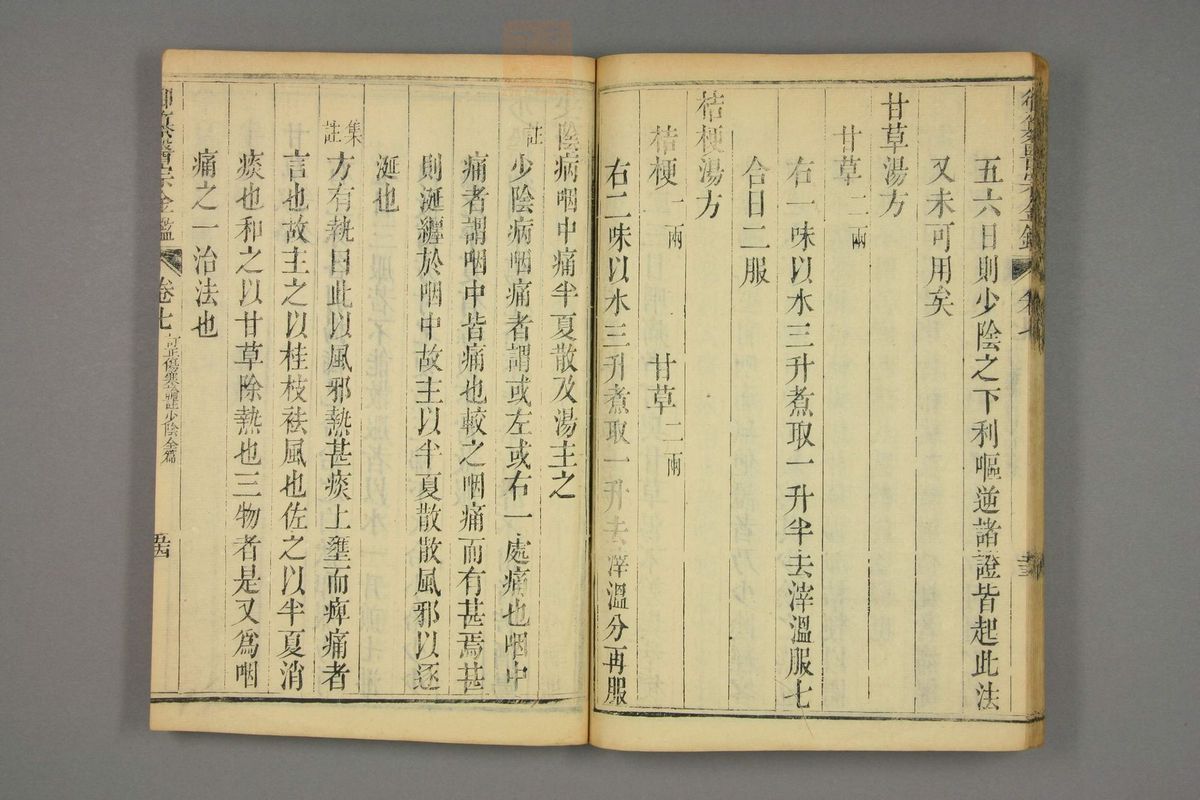 五六日則少陰之下利嘔逆諸證皆起此法
又未可用矣
甘草湯方
甘草二兩
右一味以水三升煮取一升半去滓溫服七
合日二服
桔梗湯方
桔梗一兩 甘草二兩
右二味以水三升煮取一升去滓溫分再服
少陰病咽中痛半夏散及湯主之
註少陰病咽痛者謂或左或右一處痛也咽中
痛者謂咽中皆痛也較之咽痛而有甚焉甚
則涎纏於咽中故主以半夏散散風邪以逐
涎也
集註方有執曰此以風邪熱甚痰上壅而痺痛者
言也故主之以桂枝祛風也佐之以半夏消
痰也和之以甘草除熱也三物者是又為咽
痛之一治法也
御纂醫宗金鑑 卷七 訂正傷寒論註少陰全篇 五四